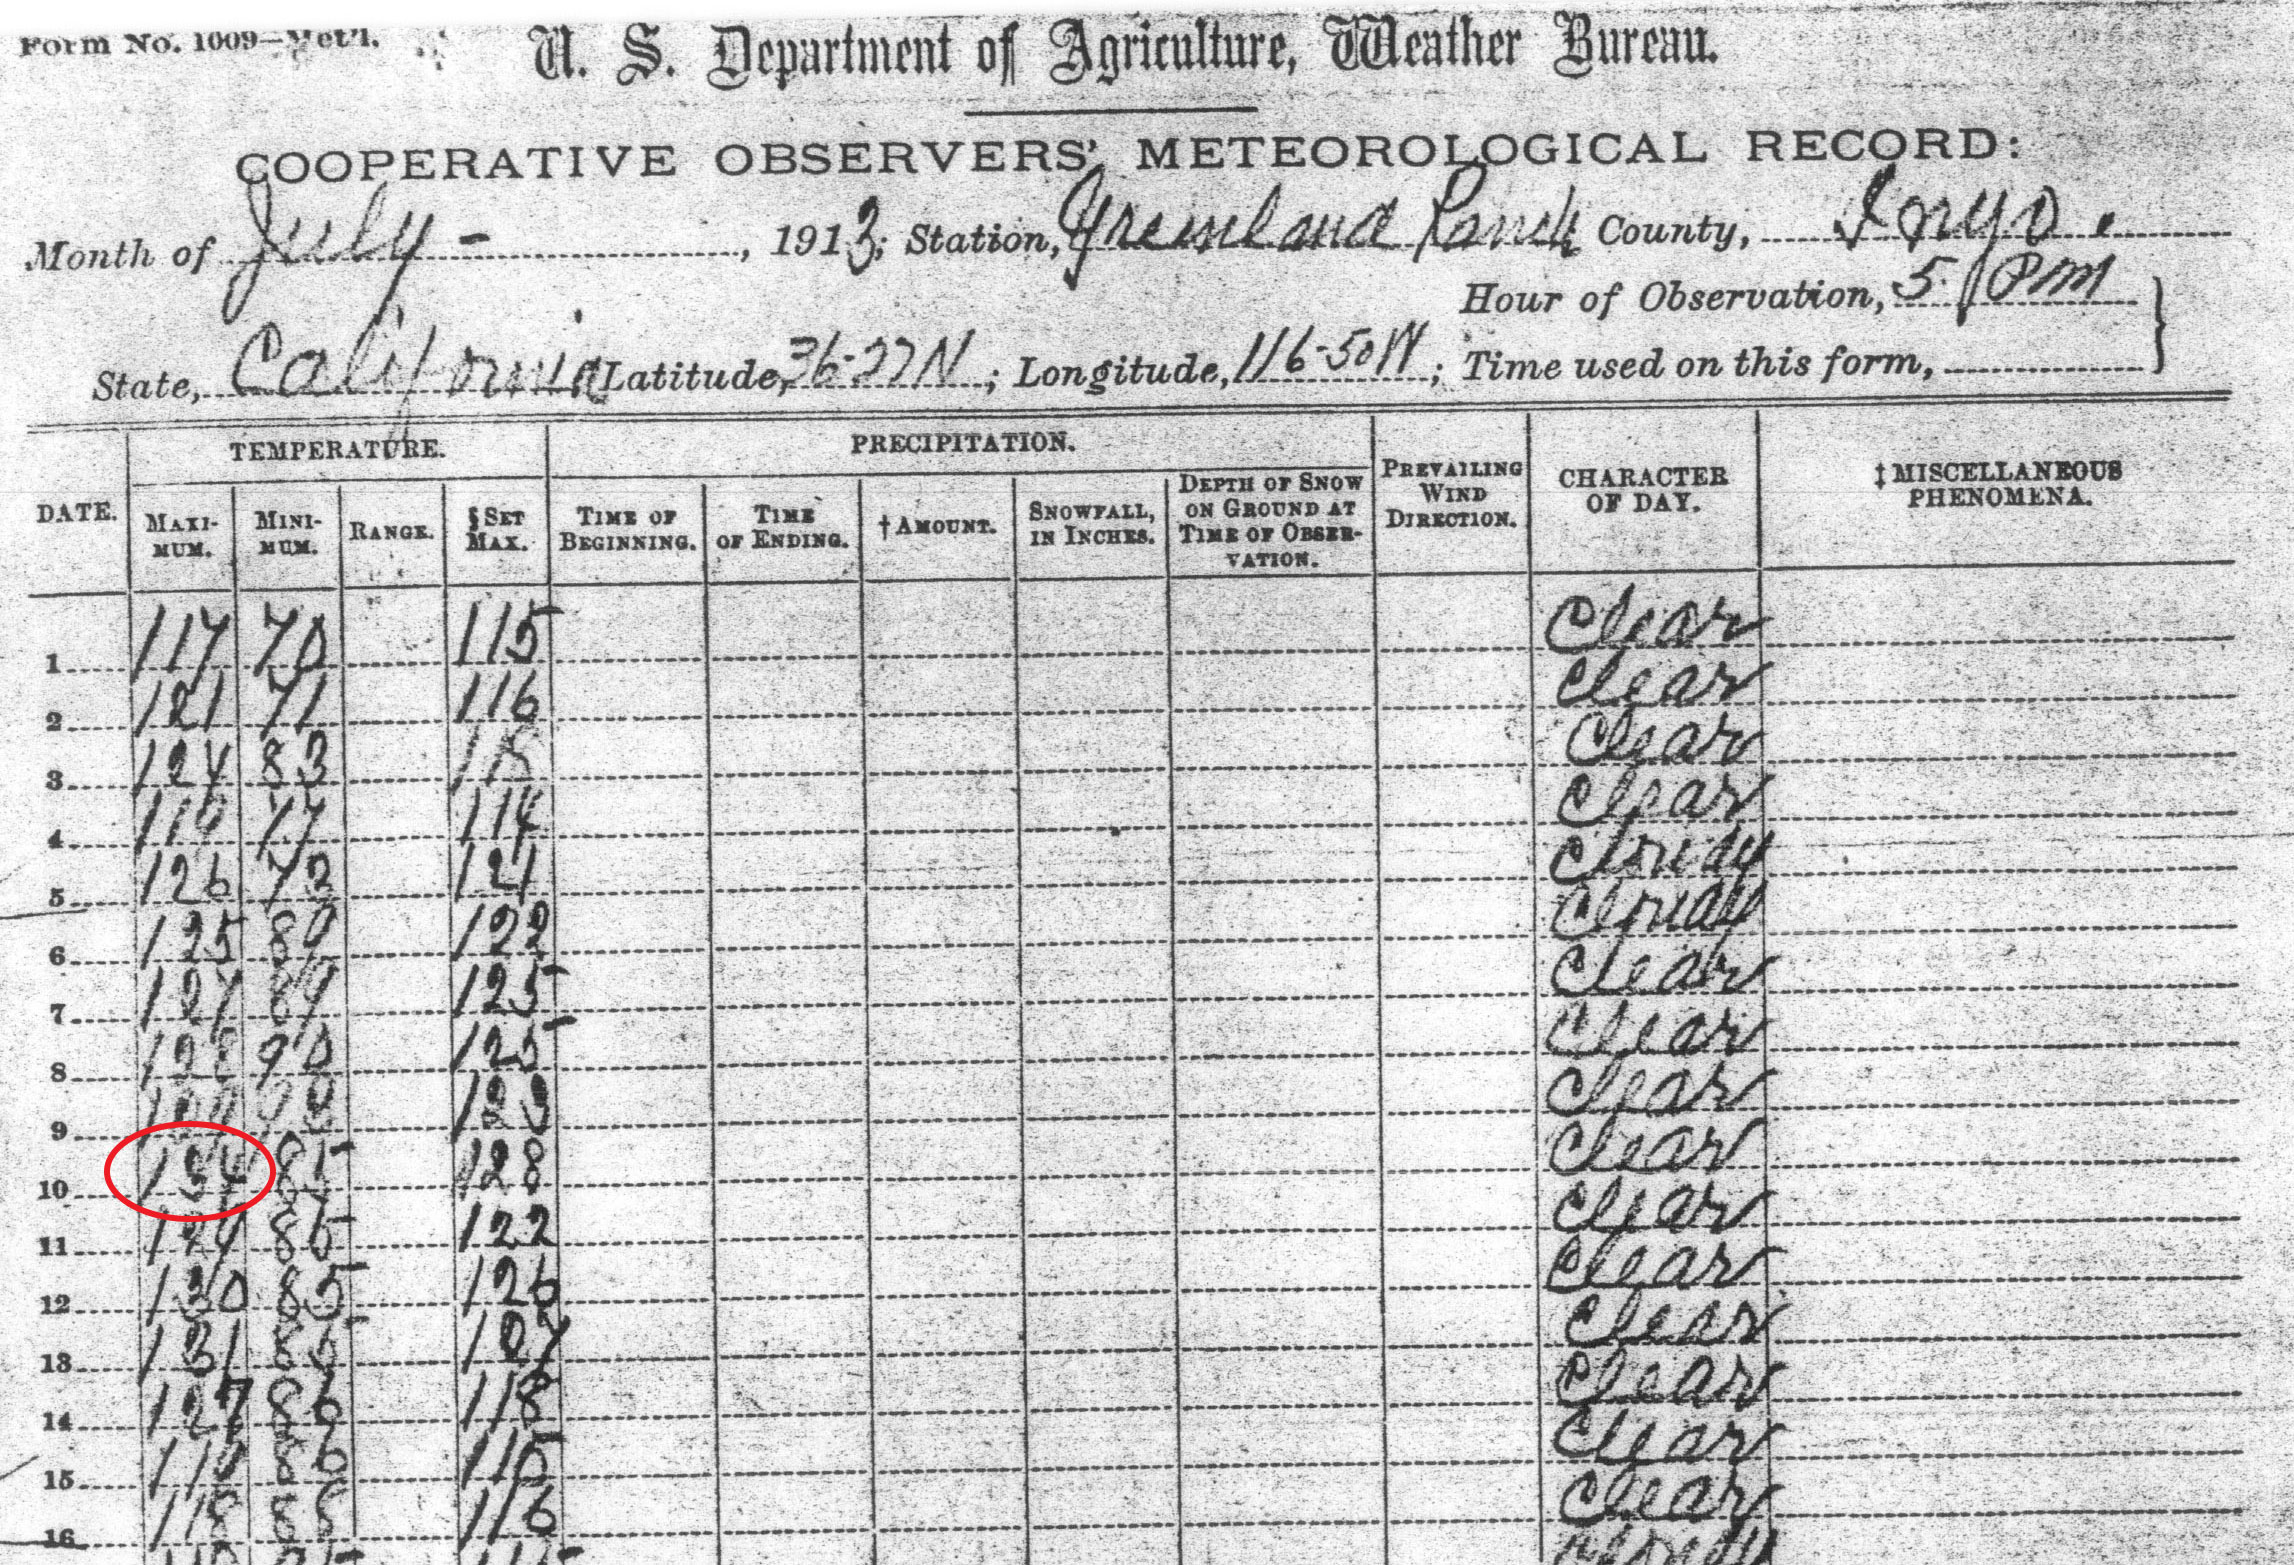 Form No. 1009—Met'l.
U. S. Department of Agriculture, Weather Bureau.
COOPERATIVE OBSERVERS' METEOROLOGICAL RECORD:
Month of July - , 1913; Station, Greenland Ranch County, Inyo.
Hour of Observation, 5 PM
State, California Latitude, 36-27N ; Longitude, 116-50W ; Time used on this form,
TEMPERATURE. PRECIPITATION.
DATE. MAXIMUM. MINIMUM. RANGE. §SET MAX. TIME OF BEGINNING. TIME OF ENDING. †AMOUNT. SNOWFALL, IN INCHES. DEPTH OF SNOW ON GROUND AT TIME OF OBSERVATION. PREVAILING WIND DIRECTION. CHARACTER OF DAY. ‡MISCELLANEOUS PHENOMENA.
1 117 70 115 Clear
2 121 71 116 Clear
3 124 83 Clear
4 77 114 Clear
5 126 72 121 Cloudy
6 125 122 Cloudy
7 127 89 125 Clear
8 128 90 125 Clear
9 Clear
10 134 85 128 Clear
11 129 85 122 Clear
12 130 85 126 Clear
13 131 85 107 Clear
14 127 86 118 Clear
15 86 115 Clear
16 118 116 Clear